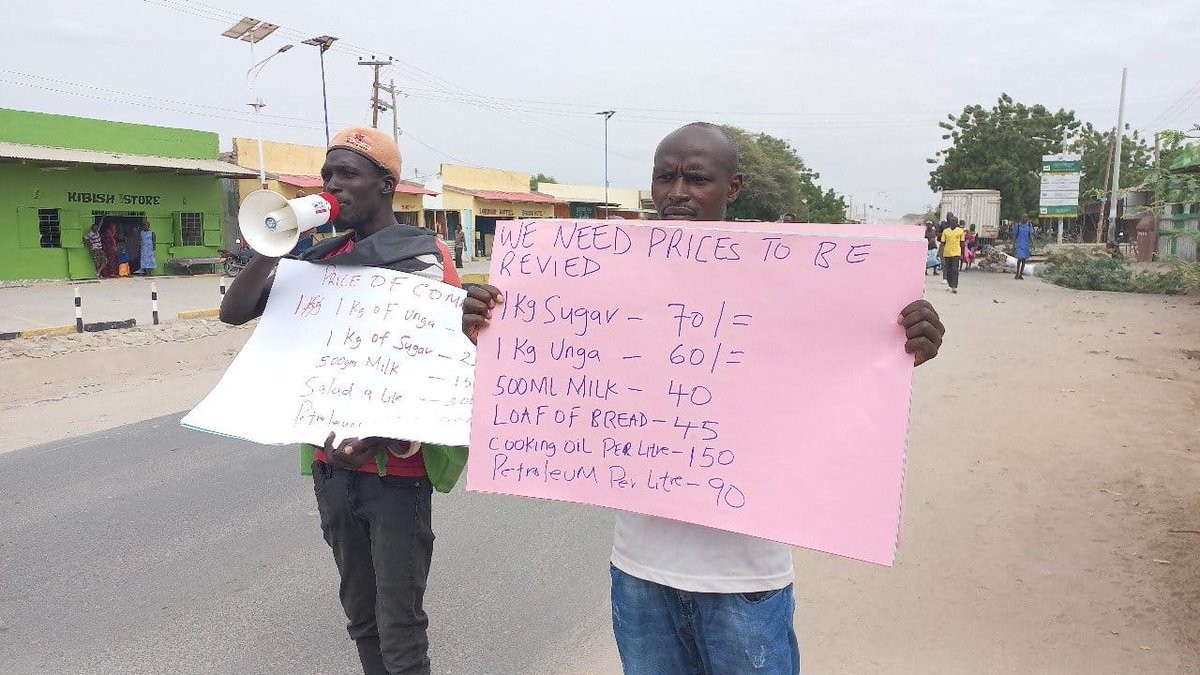 KIBISH STORE
PRICE OF
1 Kg OF Unga -
1 Kg of Sugar -
500gm Milk -
Salad a Lite --
Petroleum
WE NEED PRICES TO BE
REVIED
1Kg Sugar - 70/=
1 Kg Unga - 60/=
500ML MILK - 40
LOAF OF BREAD - 45
COOKING OIL PER Litre - 150
Petroleum Per Litre - 90